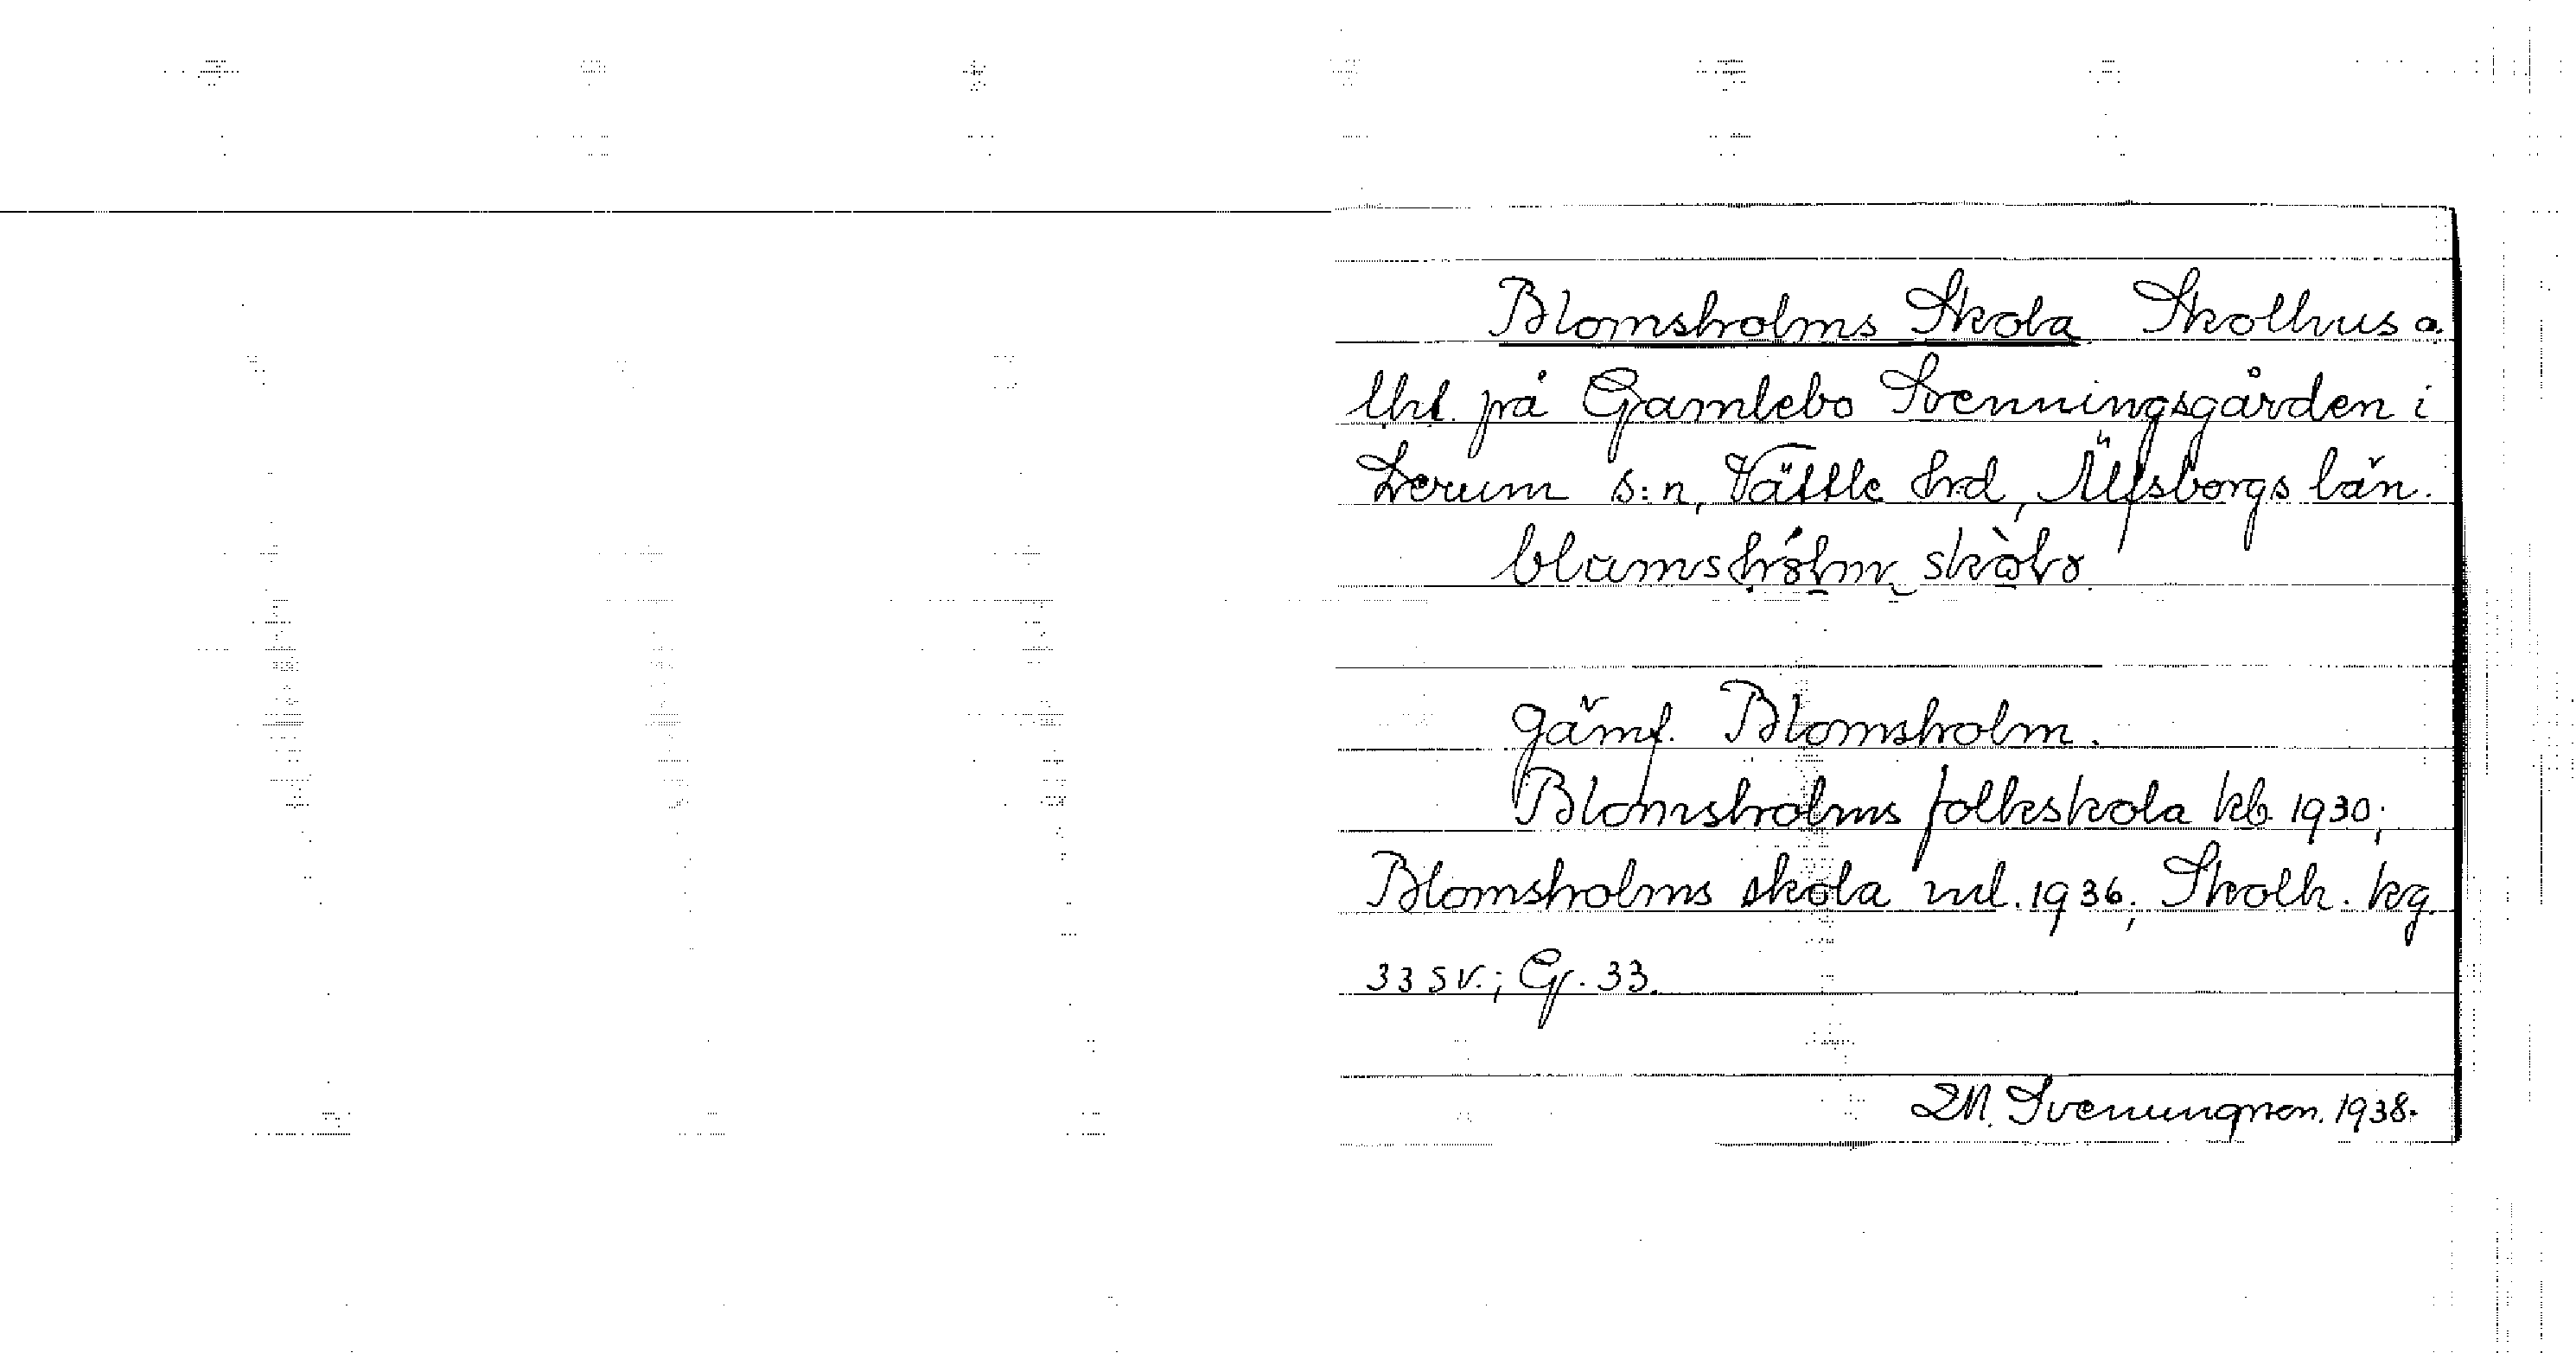 Blomsholms Skola Skolhus o.
lht. på Gamlebo Svenningsgården i
Lerum s:n, Vättle hrd, Älfsborgs län.
blumshólm skòlo
Jämf. Blomsholm.
Blomsholms folkskola kb. 1930;
Blomsholms skola 1936; Skolh. kg.
33 sv.; Gf. 33.
Svenungsson. 1938.